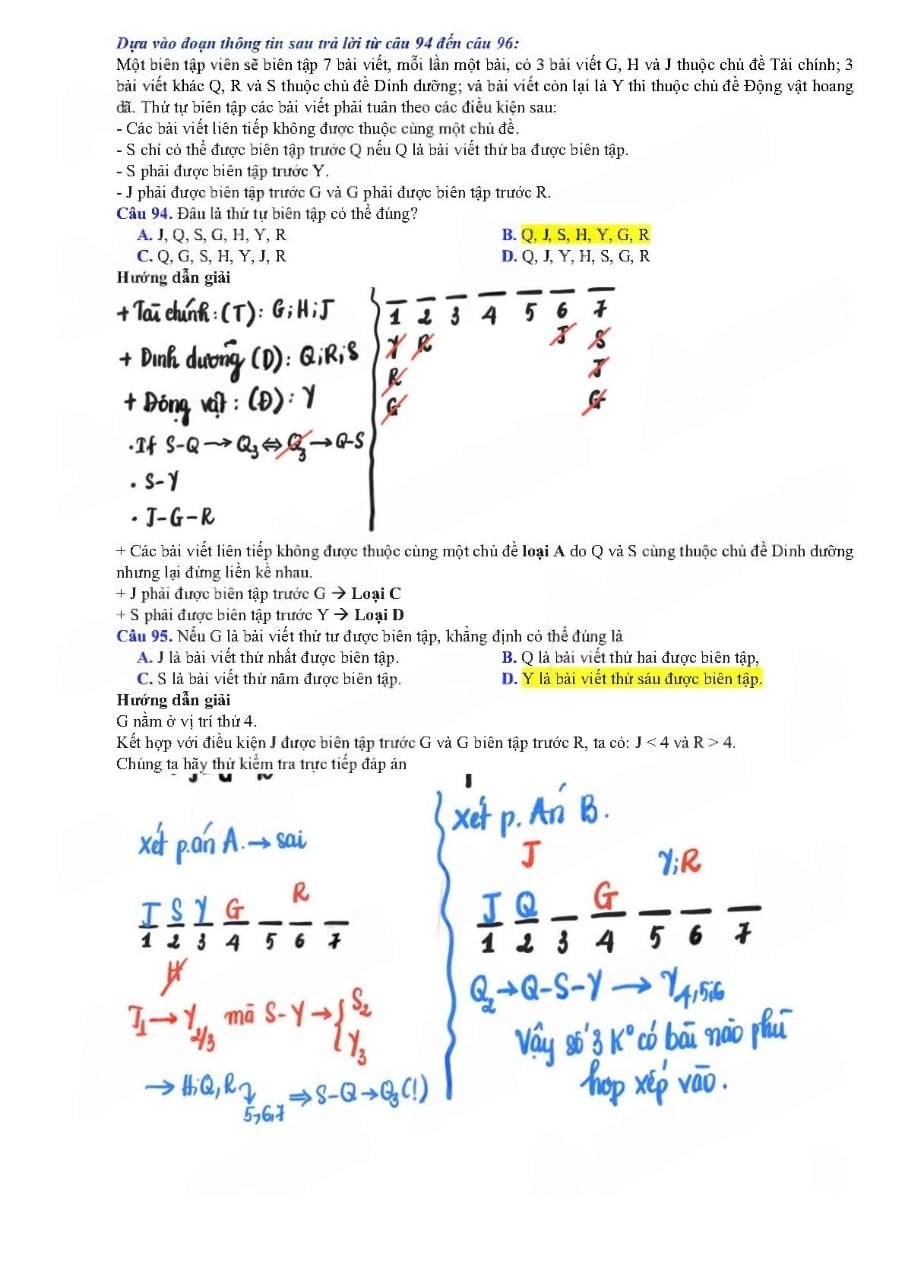 Dựa vào đoạn thông tin sau trả lời từ câu 94 đến câu 96:
Một biên tập viên sẽ biên tập 7 bài viết, mỗi lần một bài, có 3 bài viết G, H và J thuộc chủ đề Tài chính; 3
bài viết khác Q, R và S thuộc chủ đề Dinh dưỡng; và bài viết còn lại là Y thì thuộc chủ đề Động vật hoang
dã. Thứ tự biên tập các bài viết phải tuân theo các điều kiện sau:
- Các bài viết liên tiếp không được thuộc cùng một chủ đề.
- S chỉ có thể được biên tập trước Q nếu Q là bài viết thứ ba được biên tập.
- S phải được biên tập trước Y.
- J phải được biên tập trước G và G phải được biên tập trước R.
Câu 94. Đâu là thứ tự biên tập có thể đúng?
A. J, Q, S, G, H, Y, R
B. Q, J, S, H, Y, G, R
C. Q, G, S, H, Y, J, R
D. Q, J, Y, H, S, G, R
Hướng dẫn giải
+ Tài chính: (T): G; H; J
+ Dinh dương (D): Q; R; S
+ Động vật: (Đ): Y
. If S-Q → Q3 ⇔ Q3 → Q-S
. S-Y
. J-G-R
1 2 3 4 5 6 7
Y R J S
R J
G G
+ Các bài viết liên tiếp không được thuộc cùng một chủ đề loại A do Q và S cùng thuộc chủ đề Dinh dưỡng
nhưng lại đứng liền kề nhau.
+ J phải được biên tập trước G → Loại C
+ S phải được biên tập trước Y → Loại D
Câu 95. Nếu G là bài viết thứ tư được biên tập, khẳng định có thể đúng là
A. J là bài viết thứ nhất được biên tập.
B. Q là bài viết thứ hai được biên tập,
C. S là bài viết thứ năm được biên tập.
D. Y là bài viết thứ sáu được biên tập.
Hướng dẫn giải
G nằm ở vị trí thứ 4.
Kết hợp với điều kiện J được biên tập trước G và G biên tập trước R, ta có: J < 4 và R > 4.
Chúng ta hãy thử kiểm tra trực tiếp đáp án
xét p.án A. → sai
R
J S Y G
1 2 3 4 5 6 7
H
J1 → Y2/3 mã S-Y → { S2
Y3
→ H; Q, R 5,6,7 ⇒ S-Q → Q3 (!)
xét p. Án B.
J Y; R
J Q G
1 2 3 4 5 6 7
Q2 → Q-S-Y → Y4,5,6
Vậy số 3 K° có bài nào phù
hợp xếp vào.